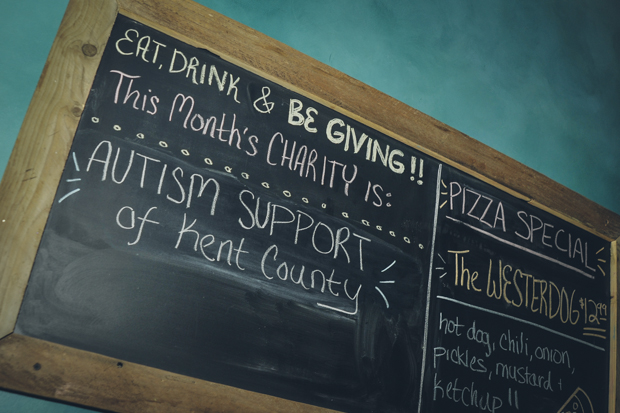 EAT, DRINK & BE GIVING!!
This Month's CHARITY IS:
AUTISM SUPPORT
of Kent County
PIZZA SPECIAL
The WESTERDOG $12.99
hot dog, chili, onion,
pickles, mustard +
ketchup!!